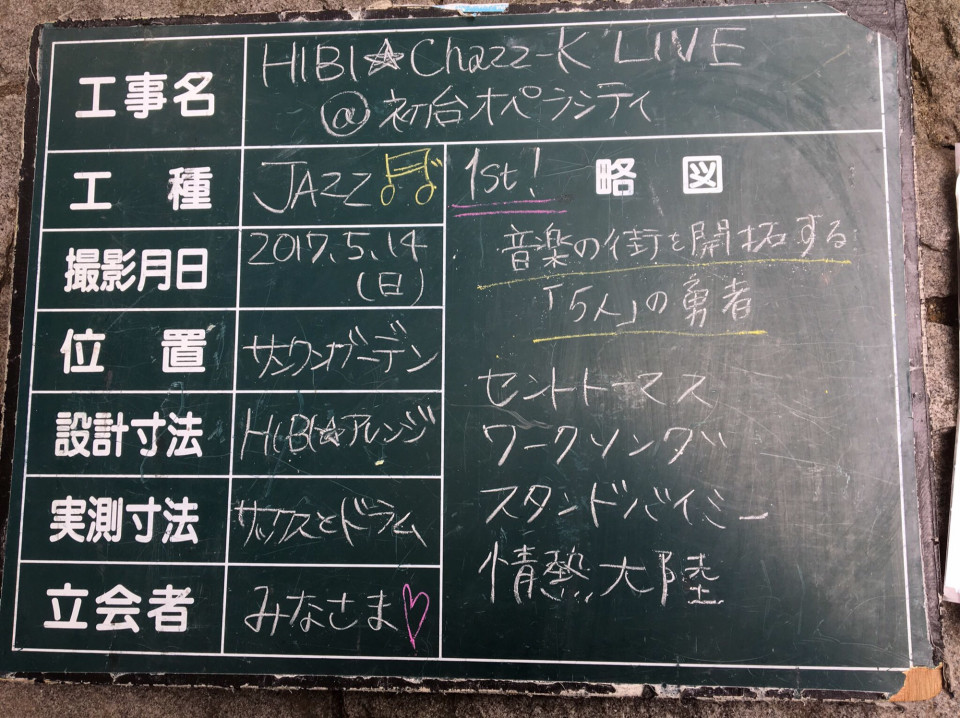 工事名
HIBI☆Chazz-K LIVE
@初台オペラシティ
工種
JAZZ♫
撮影月日
2017.5.14
(日)
位置
サンクンガーデン
設計寸法
HIBI☆アレンジ
実測寸法
サックスとドラム
立会者
みなさま♡
1st! 略図
音楽の街を開拓する
「5人」の勇者
セントトーマス
ワークソング
スタンドバイミー
情熱大陸